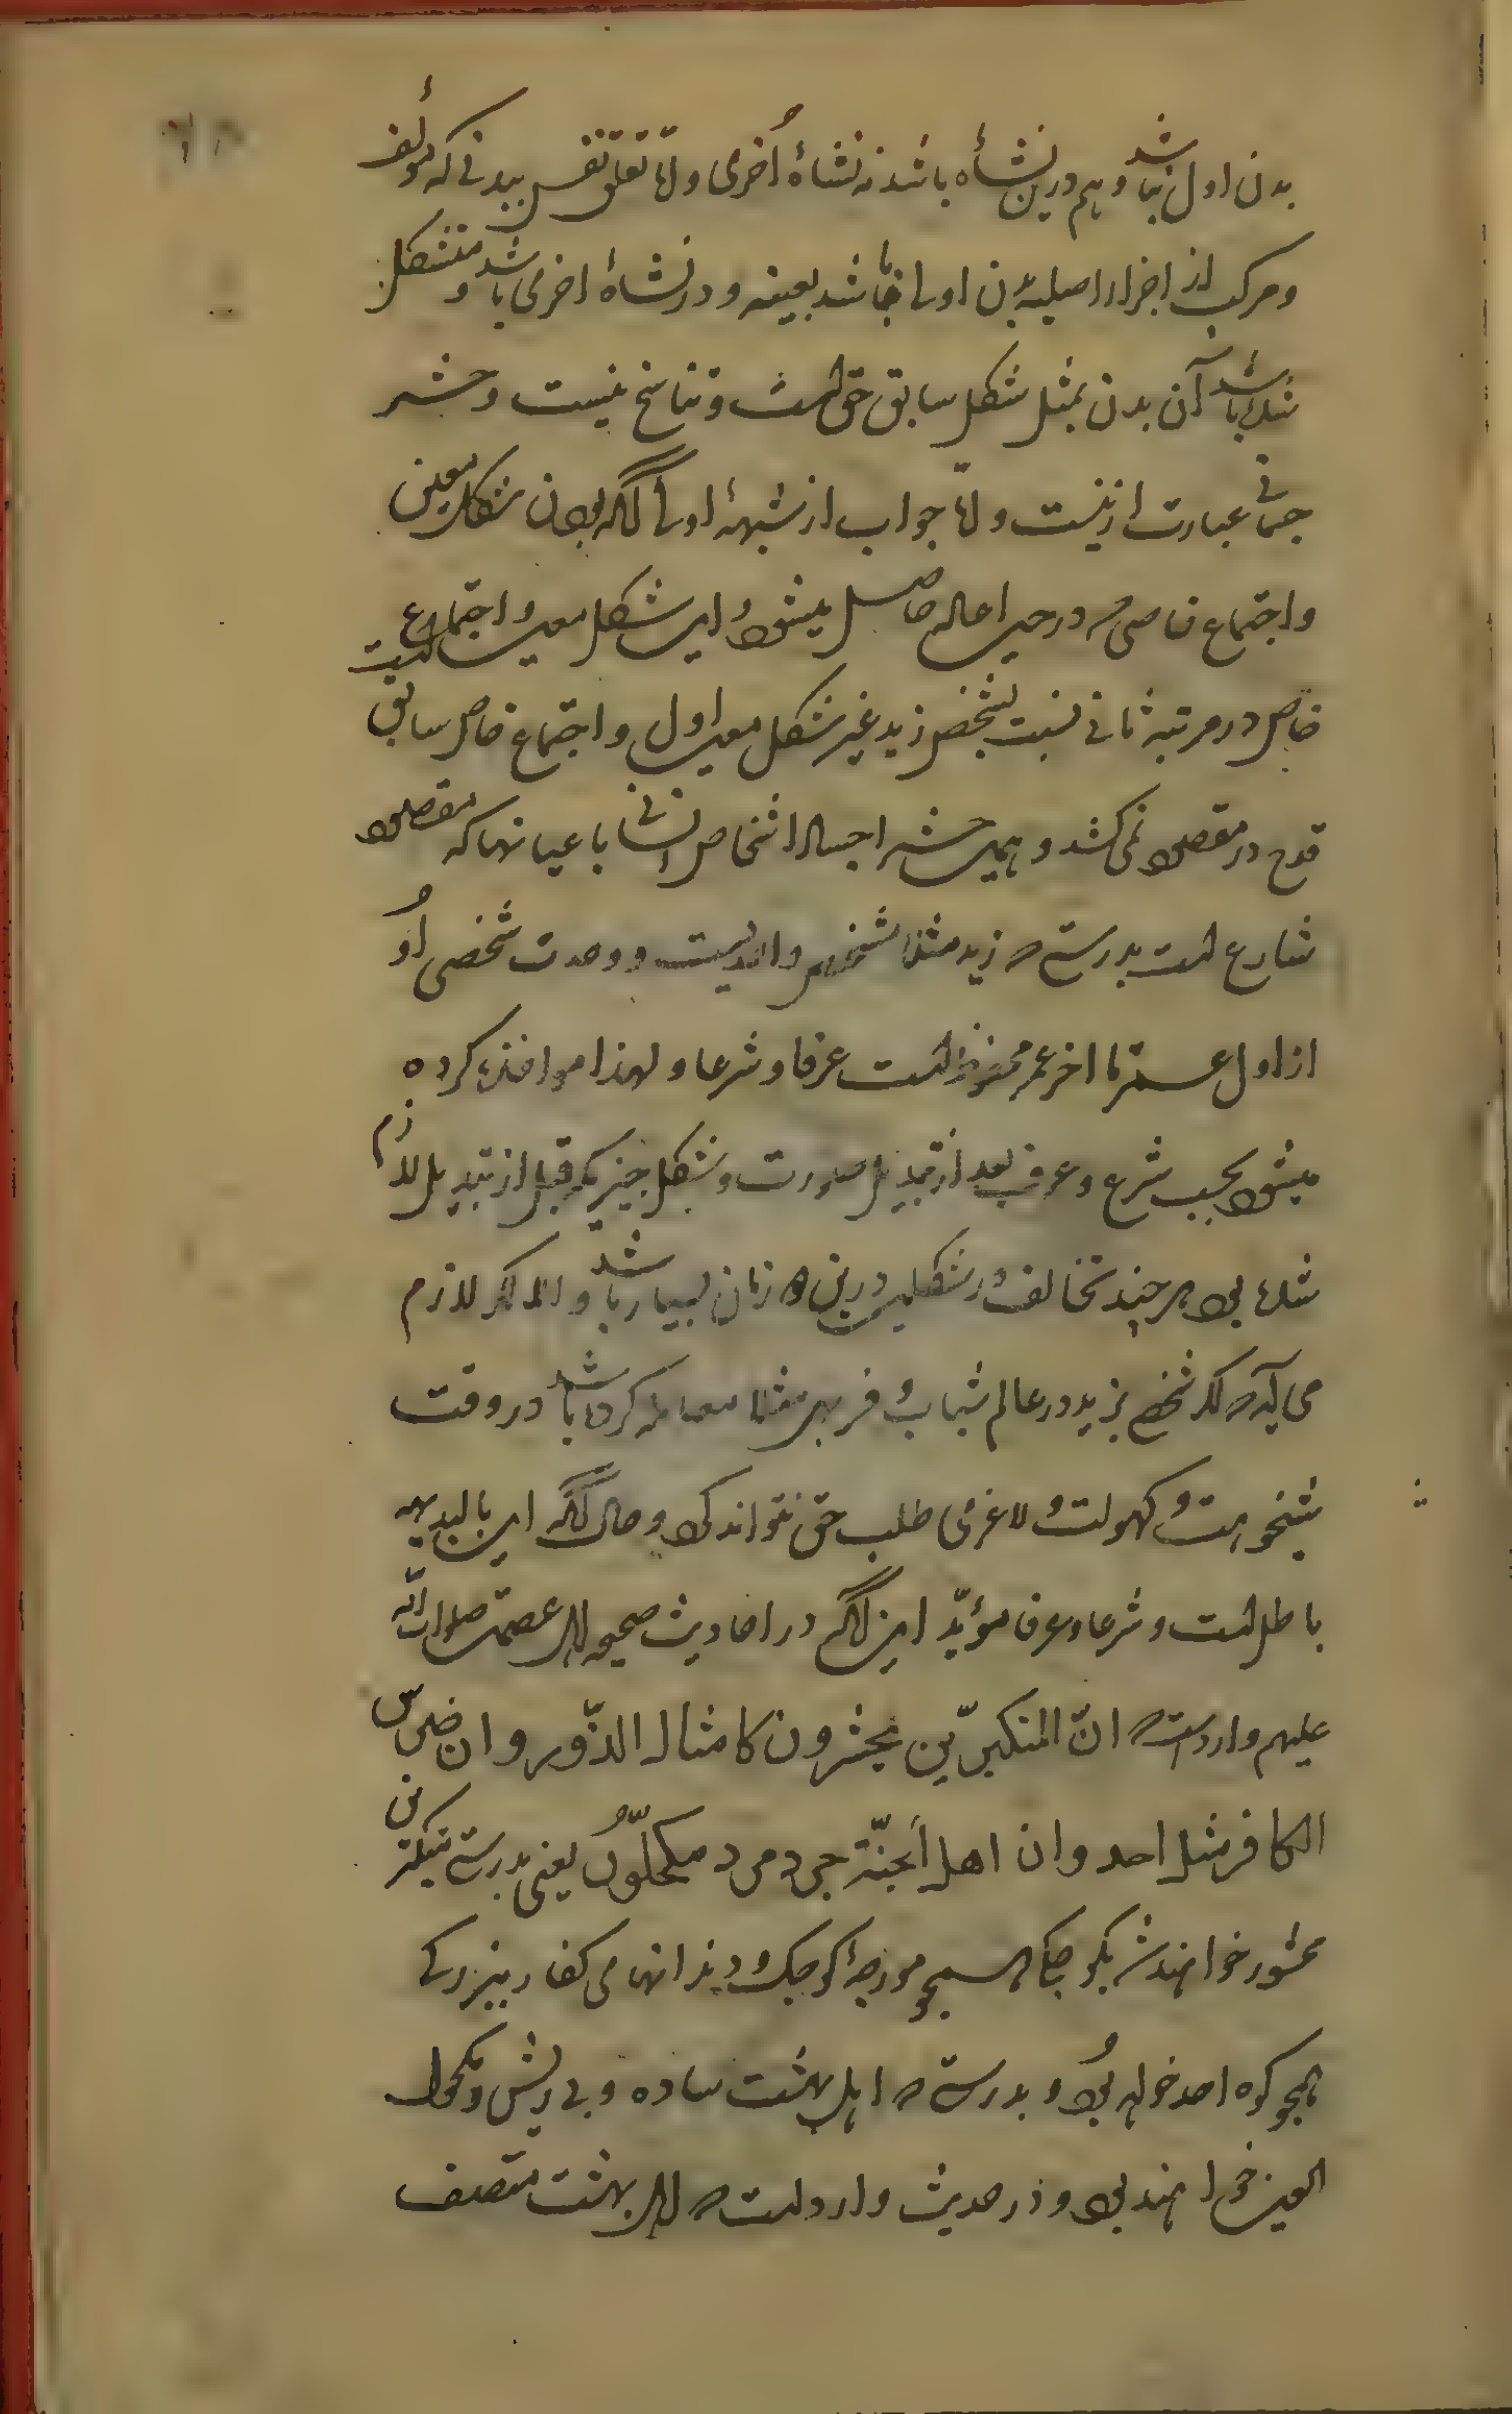 بدن اول نباشد و هم درین نشأه باشد نه نشاهٔ أخری و امّا تعلق نفس ببدنی که مؤلف
و مرکب از اجزاء اصلیهٔ بدن اول باشد بعینه و در نشاهٔ اخری باشد و متشکل
شده باشد آن بدن بمثل شکل سابق حق است و تناسخ نیست و حشر
جسمانی عبارت ازینست و امّا جواب از شبههٔ اولی آنکه بودن شکل معین
و اجتماع خاصی که در حین اعاده حاصل میشود این شکل معین و اجتماع
خاص در مرتبه ثانی نسبت بشخص زید غیر شکل معین اول و اجتماع خاص سابق است
قدح در مقصود نمی‌کند و همین حشر اجساد اشخاص انسانی باعیانها که مقصود
شارع است بدرستی که زید مثلا شخص واحدیست و وحدت شخصی او
از اول عمر تا اخر عمر محفوظ است عرفا و شرعا و لهذا مواخذه کرده
میشود بحسب شرع و عرف بعد از تبدیل صورت و شکل بچیزیکه قبل از تبدیل لازم
شده بود هر چند تخالف در شکلین درین دو زمان بسیار باشد و الا لازم
می‌آید که اگر شخصی بزید در عالم شباب و فربهی مثلا معامله کرده باشد در وقت
شیخوخت و کهولت و لاغری طلب حق نتواند کرد و حال آنکه این بالبدیهه
باطل است و شرعا و عرفا مؤیّد این آنکه در احادیث صحیحه اهل عصمت صلوات الله
علیهم وارد است که انّ المتکبرّین یحشرون کامثال الذّر و ان ضرس
الکافر مثل احد و ان اهل الجنّة جرد مرد مکحّلون یعنی بدرستی متکبرین
محشور خواهند شد بکوچکی همچو مورچهٔ کوچک و دندانهای کفار ببزرگی
همچو کوه احد خواهد بود و بدرستی که اهل بهشت ساده و بی ریش و مکحول
العین خواهند بود و در حدیث وارد است که اهل بهشت متصف